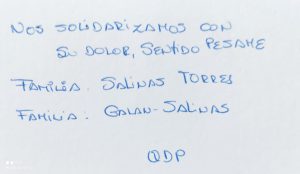 NOS SOLIDARIZAMOS CON
SU DOLOR, SENTIDO PESAME
FAMILIA. SALINAS TORRES
FAMILIA: GALAN-SALINAS
QDP